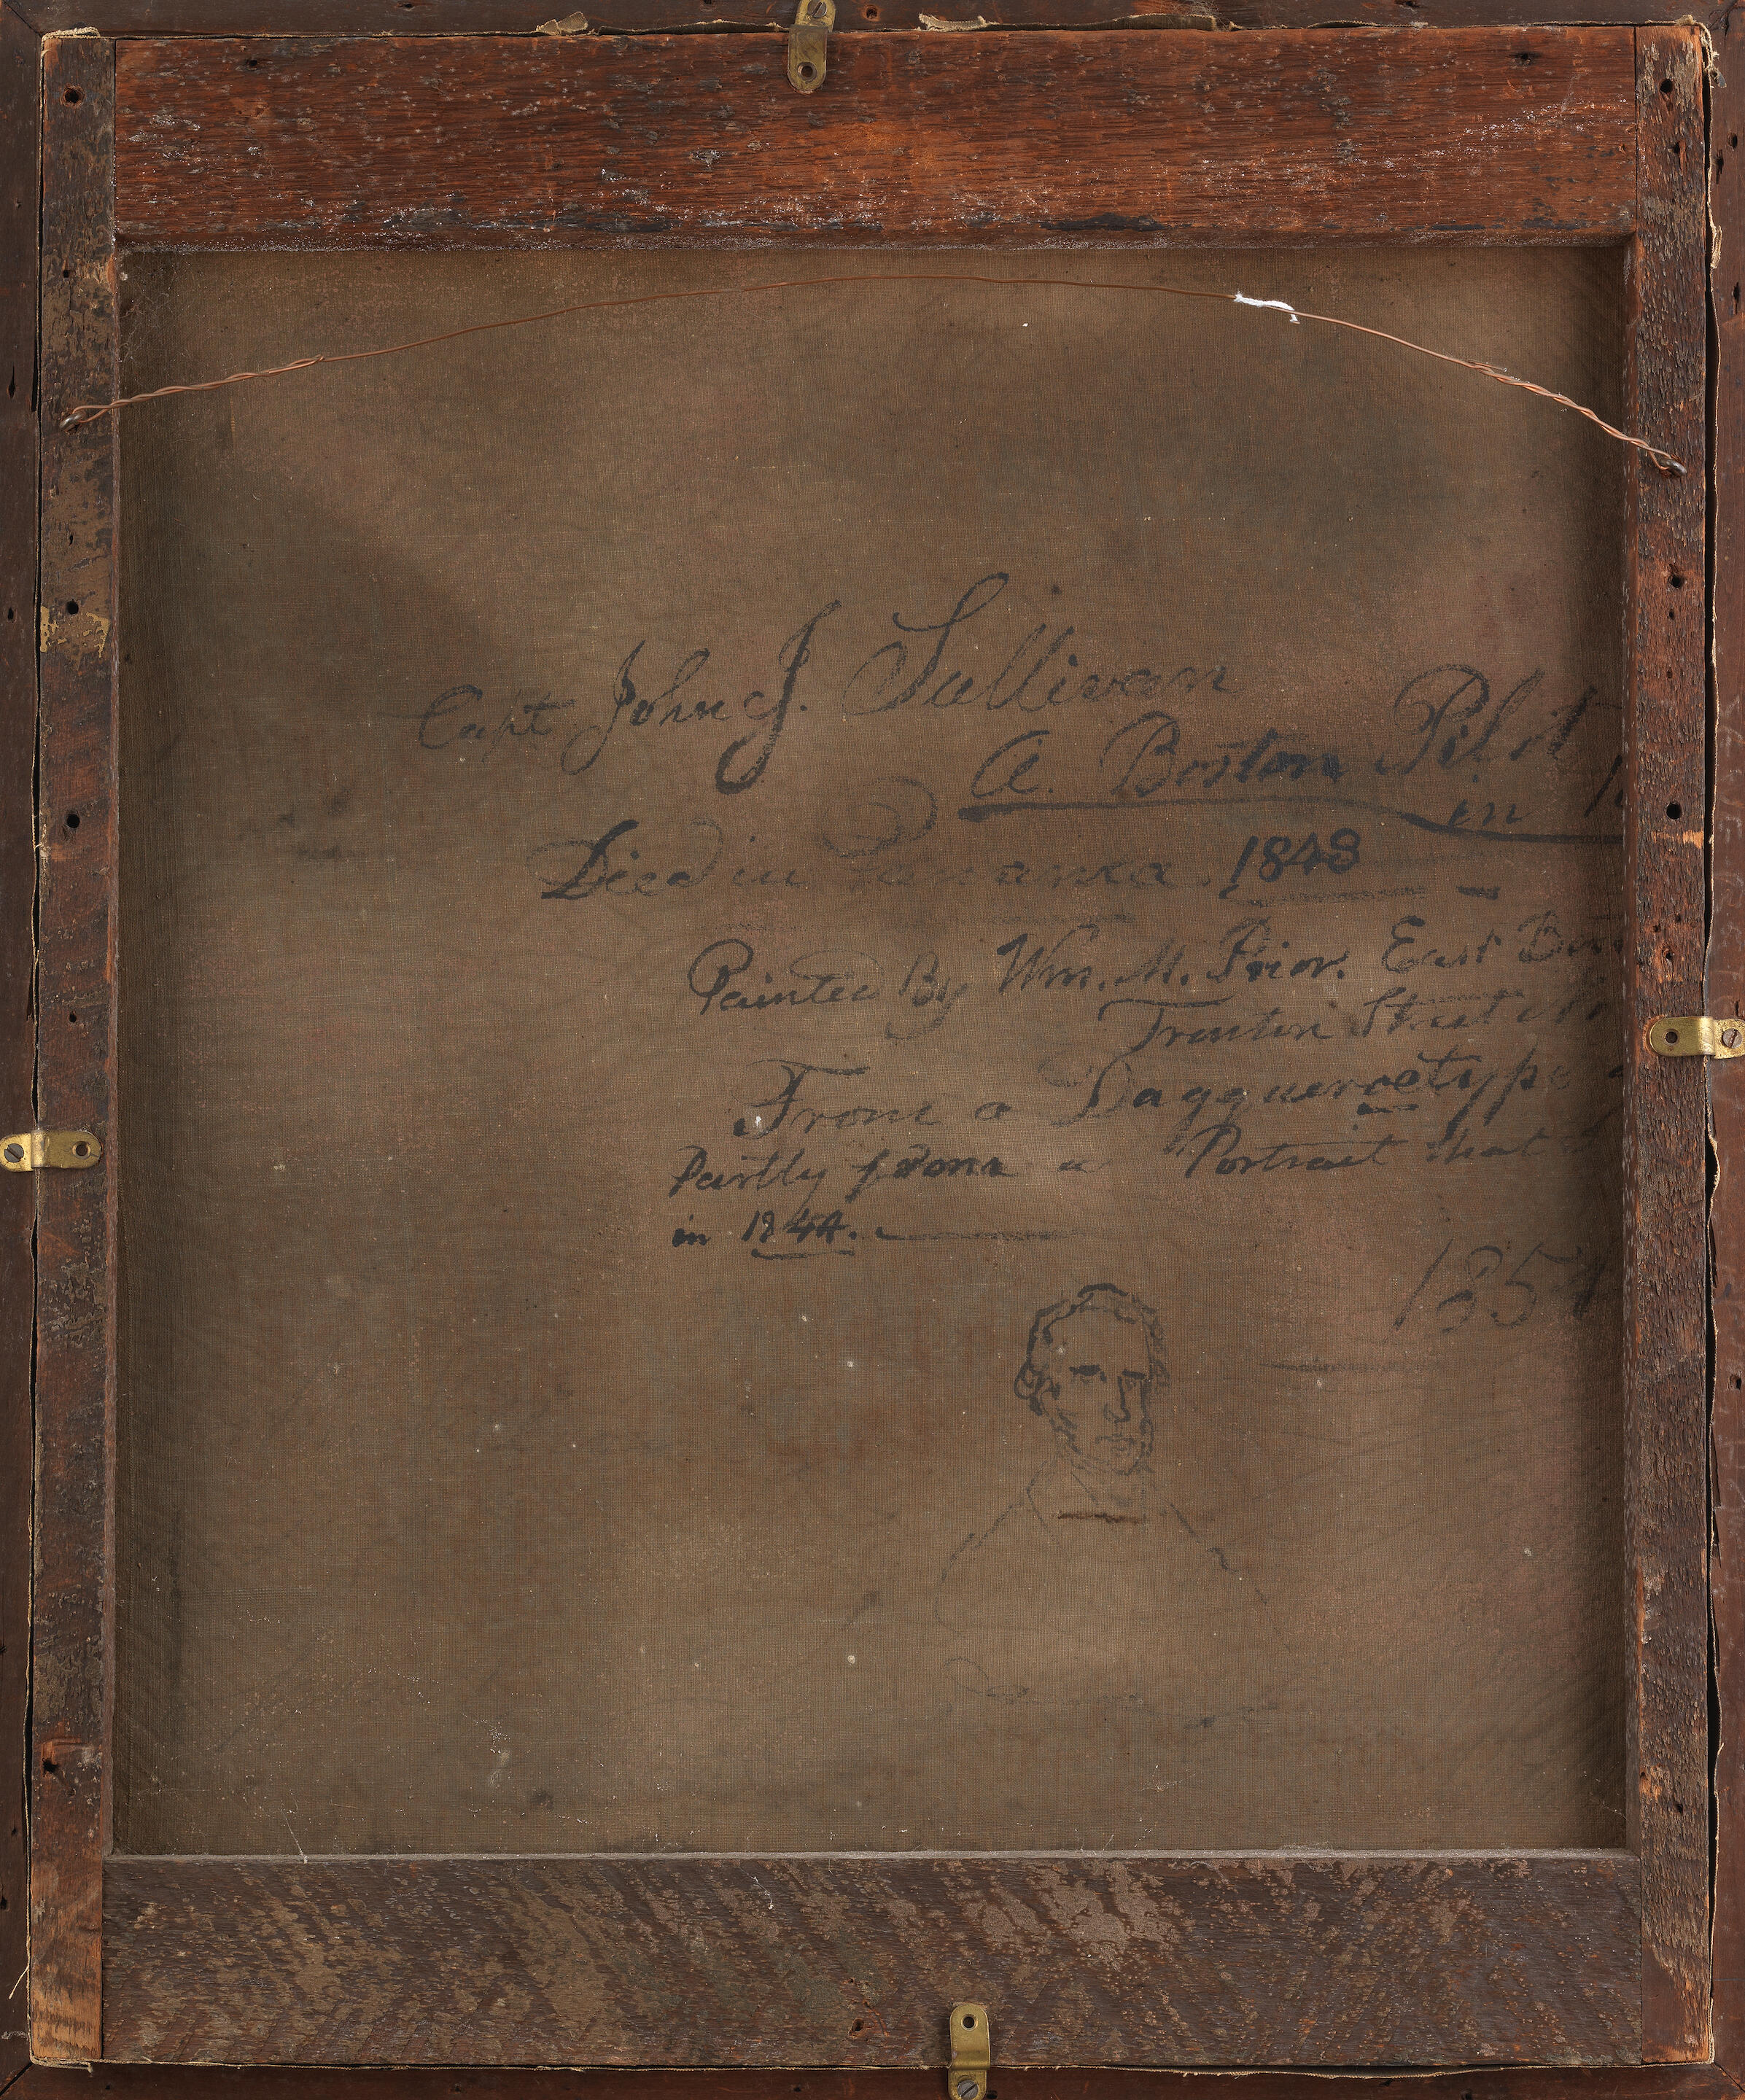 Capt John J. Sullivan
A. Boston Pilot
in
Died in Panama. 1848
Painted By Wm. M. Prior. East Bos
Trenton Street
From a Dagguerroetype
Partly from a Portrait that
in 1844.
185